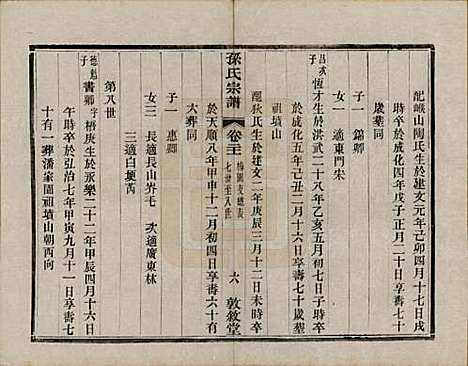 配巘山陶氏生於建文元年己卯四月十七日戌
時卒於成化四年戊子正月二十日享壽七十
歲墓同
子一 錦卿
女一 適東門宋
昌亥子 恆才生於洪武二十八年乙亥五月初七日子時卒
於成化五年己丑二月十六日享壽七十七歲墓
祖墳山
配狄氏生於建文二年庚辰三月十二日未時卒
孫氏宗譜
卷三
七世至八世
六
敦敘堂
於天順八年甲申十二月初四日享壽六十有
六葬同
子一 惠卿
女三 長適長山岸毛 次適廣東林
三適白埂芮
第八世
德魁子 書卿 字梧庚生於永樂二十二年甲辰四月十六日
午時卒於弘治七年甲寅九月十一日享壽七
十有一葬潘家園祖墳山朝西向